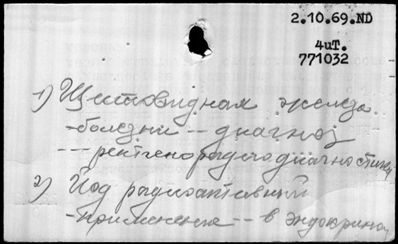 2.10.69.ND
4иТ.
771032
1) Щитовидная железа
-болезни -- диагноз
--- рентгенорадиодиагностика
2) Йод радиоактивный
-применение -- в эндокрино